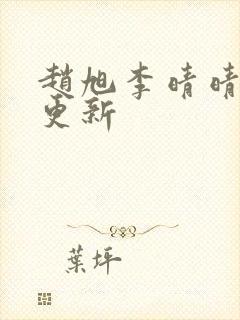 趙旭李晴晴
更新
葉坪